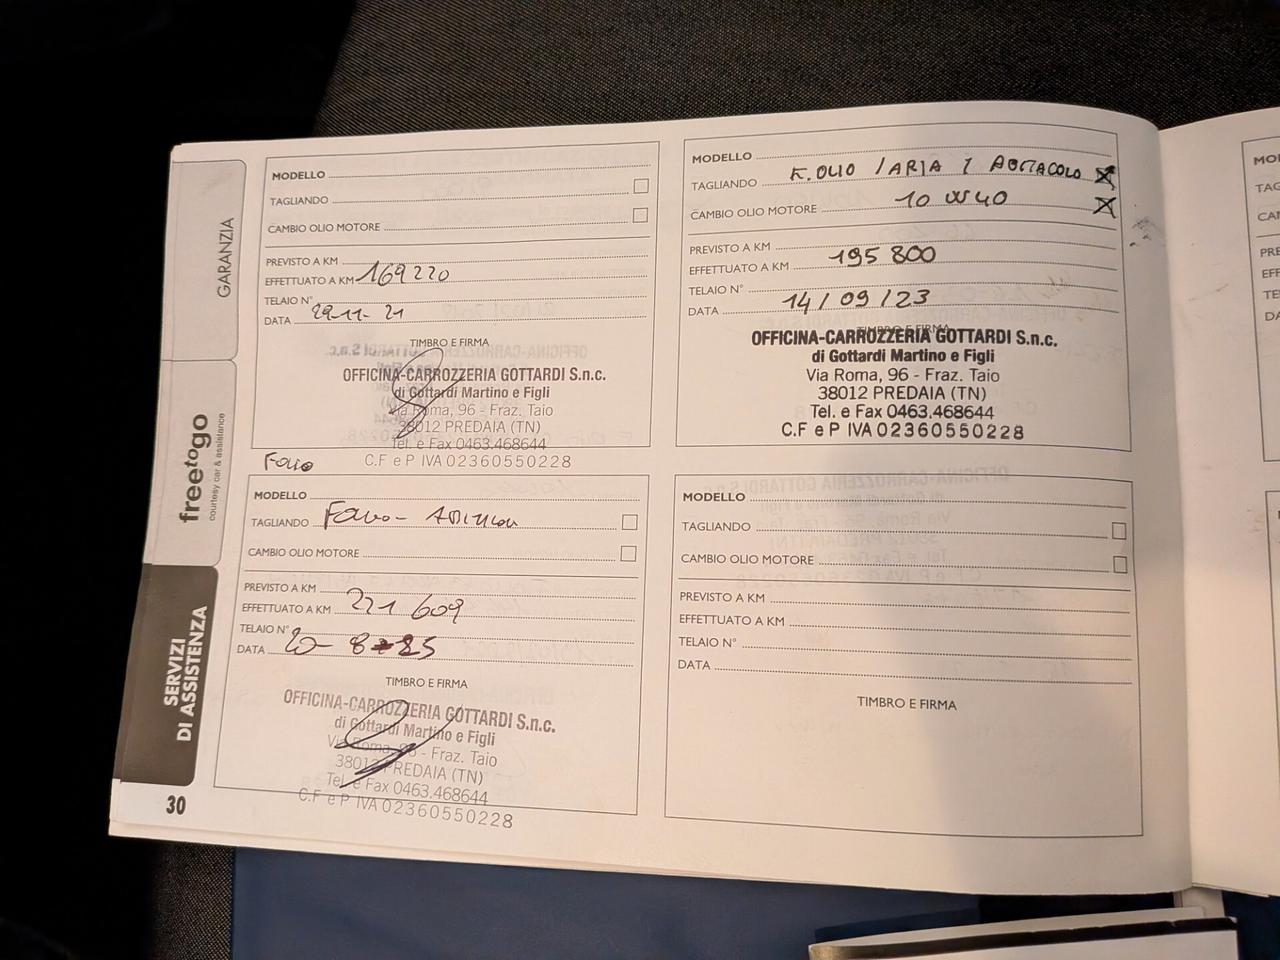 GARANZIA
freetogo
courtesy car & assistance
SERVIZI
DI ASSISTENZA
30
MODELLO
TAGLIANDO
CAMBIO OLIO MOTORE
PREVISTO A KM
EFFETTUATO A KM 169220
TELAIO N°
DATA 29-11-21
TIMBRO E FIRMA
OFFICINA-CARROZZERIA GOTTARDI S.n.c.
di Gottardi Martino e Figli
Via Roma, 96 - Fraz. Taio
38012 PREDAIA (TN)
Tel. e Fax 0463.468644
C.F e P IVA 02360550228
MODELLO
TAGLIANDO F. OLIO / ARIA / ABITACOLO X
CAMBIO OLIO MOTORE 10 W 40 X
PREVISTO A KM
EFFETTUATO A KM 195 800
TELAIO N°
DATA 14/09/23
TIMBRO E FIRMA
OFFICINA-CARROZZERIA GOTTARDI S.n.c.
di Gottardi Martino e Figli
Via Roma, 96 - Fraz. Taio
38012 PREDAIA (TN)
Tel. e Fax 0463.468644
C.F e P IVA 02360550228
MODELLO
TAGLIANDO
CAMBIO OLIO MOTORE
PREVISTO A KM
EFFETTUATO A KM 221 609
TELAIO N°
DATA 20-8-25
TIMBRO E FIRMA
OFFICINA-CARROZZERIA GOTTARDI S.n.c.
di Gottardi Martino e Figli
Via Roma, 96 - Fraz. Taio
38012 PREDAIA (TN)
Tel. e Fax 0463.468644
C.F e P IVA 02360550228
MODELLO
TAGLIANDO
CAMBIO OLIO MOTORE
PREVISTO A KM
EFFETTUATO A KM
TELAIO N°
DATA
TIMBRO E FIRMA